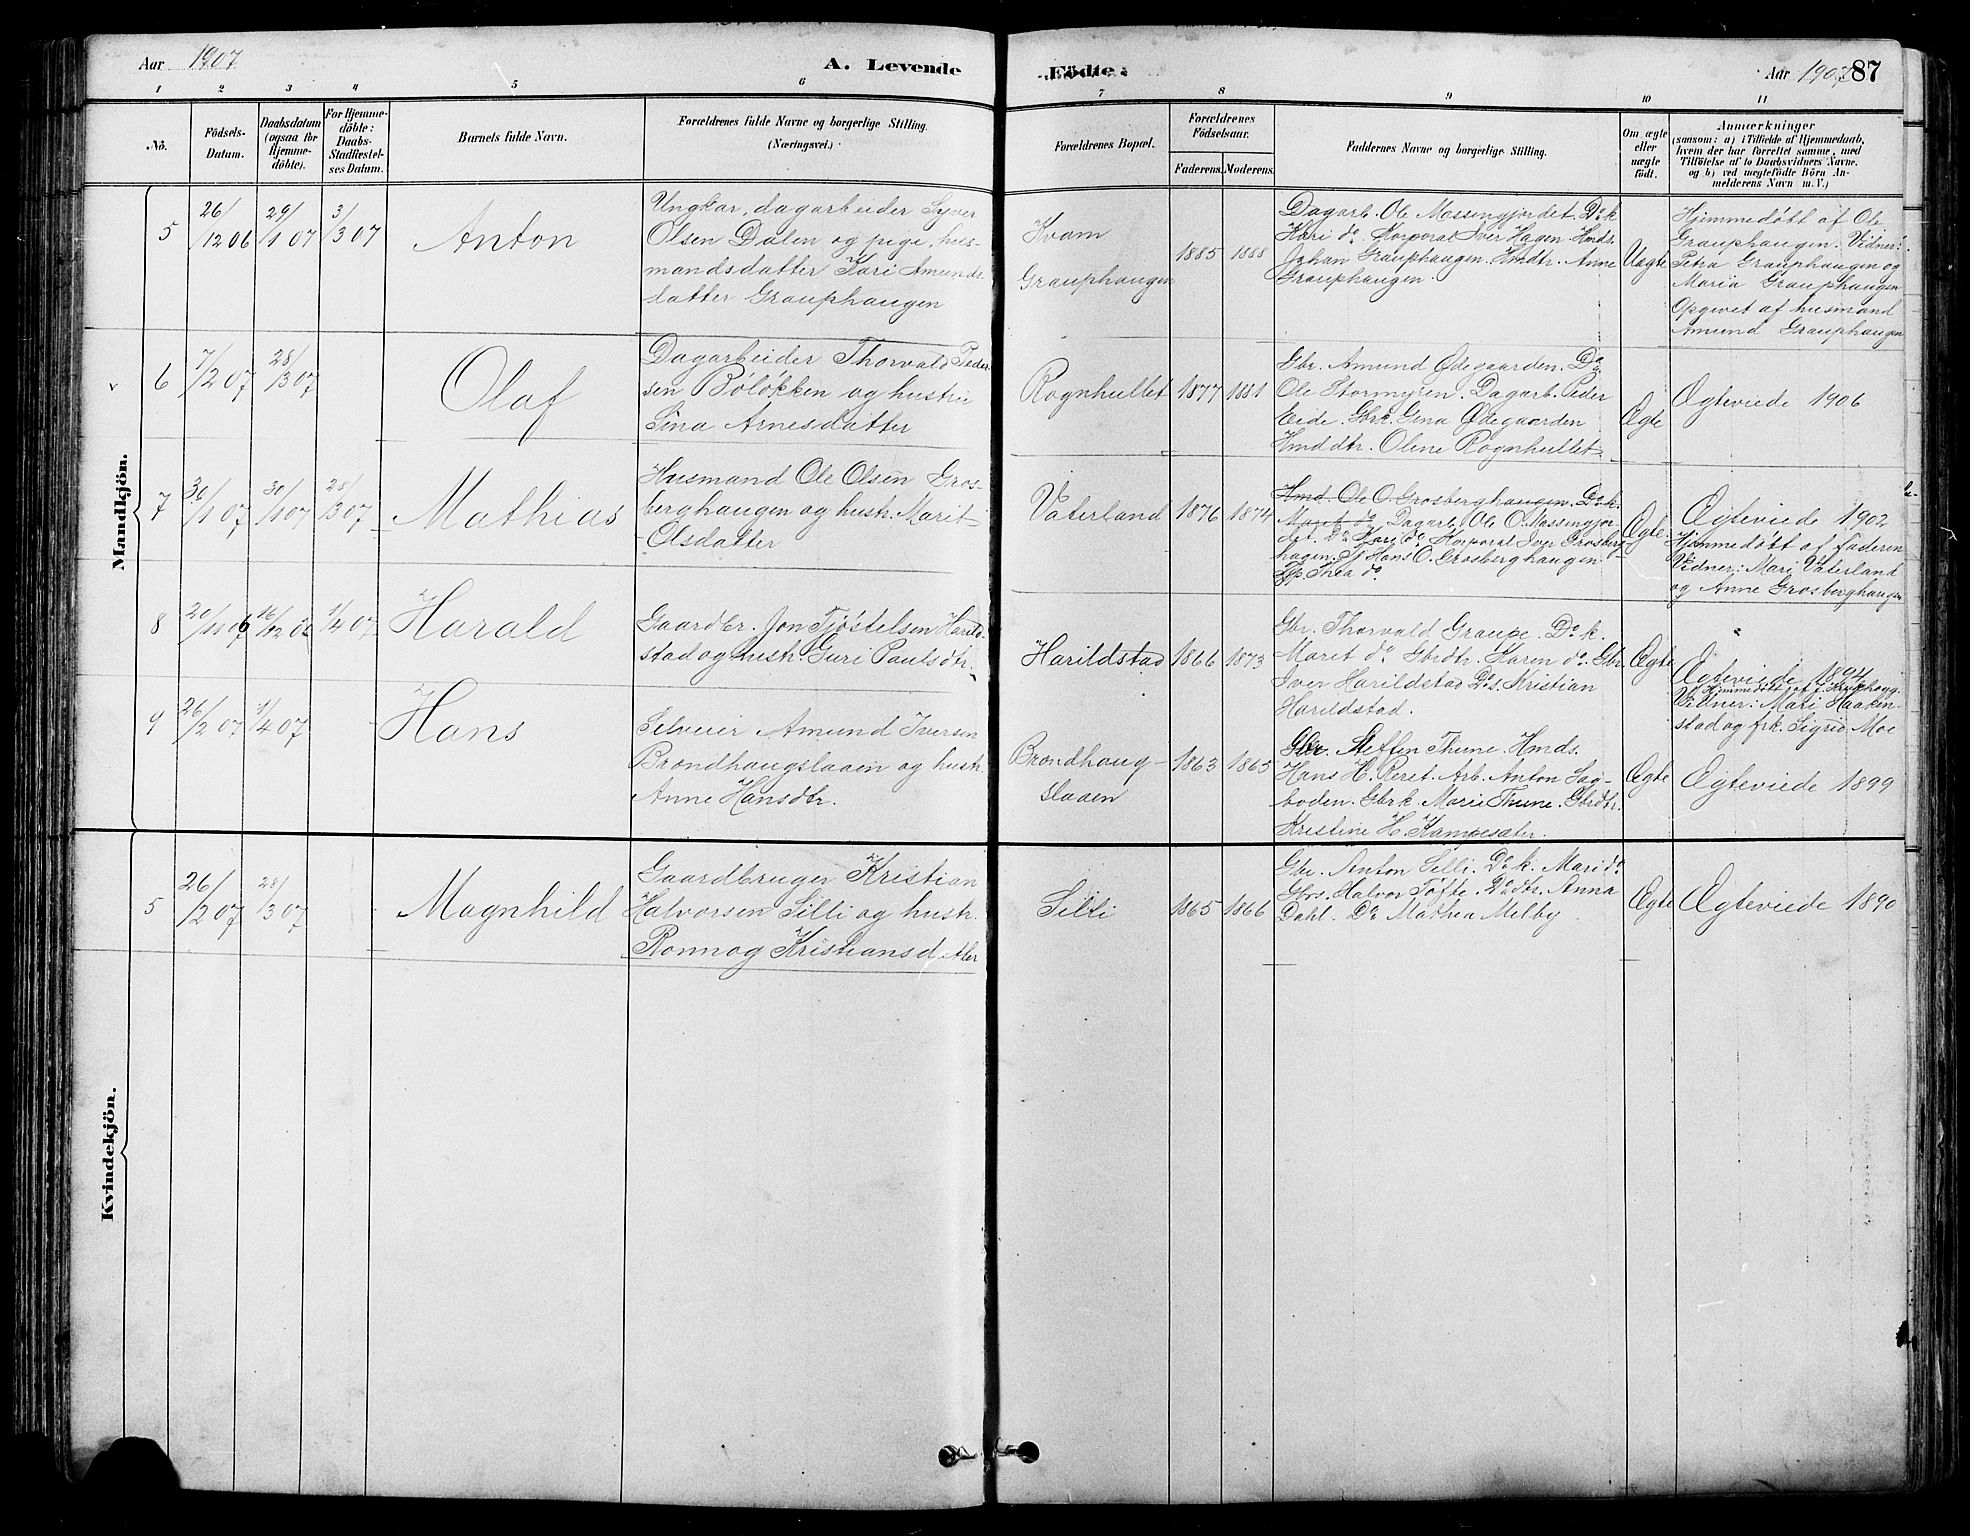 Aar 1907
A. Levende
Födte.
Aar 1907
87
1
2
3
4
5
6
7
8
9
10
11
No.
Födsels-
Datum.
Daabsdatum
(ogsaa for
Hjemme-
döbte).
For Hjemme-
döbte:
Daabs-
Stadfæstel-
ses Datum.
Barnets fulde Navn.
Forældrenes fulde Navne og borgerlige Stilling.
(Næringsvei.)
Forældrenes Bopæl.
Forældrenes
Födselsaar.
Faderens.
Moderens.
Faddernes Navne og borgerlige Stilling.
Om ægte
eller
uægte
födt.
Anmærkninger
(saasom: a) i Tilfælde af Hjemmedaab,
hvem der har forrettet samme, med
Tilföielse af to Daabsvidners Navne.
og b) ved uægtefödte Börn An-
melderens Navn m. V.)
Mandkjön.
5
26/12 06
29/1 07
3/3 07
Anton
Ungkar, dagarbeider Syver
Olsen Dalen og pige, hus-
mandsdatter Kari Amunds-
datter Grauphaugen
Kvam
Grauphaugen
1885
1888
Dagarb. Ole Massingjordet. Do k.
Kari do. Korporal Iver Hagen. Hmds.
Johan Grauphaugen. Hmdtr. Anne
Grauphaugen.
Uægte
Hjemmedöbt af Ole
Grauphaugen. Vidner:
Petra Grauphaugen og
Maria Grauphaugen
Opgivet af husmand
Amund Grauphaugen
6
7/2 07
28/3 07
Olaf
Dagarbeider Thorvald Peder-
sen Bölökken og hustru
Sina Arnesdatter
Rognhullet
1877
1881
Gbr. Amund Ødegaarden. Do
Ole Stormyren. Dagarb. Peder
Eide. Gbrk. Gina Ødegaarden
Hmddtr. Oline Rognhullet.
Ægte
Ægteviede 1906
7
30/1 07
30/1 07
28/3 07
Mathias
Husmand Ole Olsen Gros-
berghaugen og hustr. Marit
Olsdatter
Vaterland
1876
1874
Hmd. Ole O. Grosberghaugen. Do k.
Maret do Dagarb. Ole O. Massingjor-
det. Do Kari do Korporal Iver Grosberg-
haugen. Hans O. Grosberghaugen
Thea do.
Ægte.
Ægteviede 1902
Hjemmedöbt af faderen
Vidner: Mari Vaterland
og Anne Grosberghaugen
8
20/11 06
16/12 06
1/4 07
Harald
Gaardbr. Jon Tjöstelsen Harild-
stad og hustr. Guri Paulsdtr.
Harildstad
1866
1873
Gbr. Thorvald Graupe. Do k.
Maret do Gbrdtr. Karen do. Gbr.
Iver Harildstad Do s. Kristian
Harildstad.
Ægte
Ægteviede 1894
Hjemmedöbt af
Vidner: Mari Haaken-
stad og frk. Sigrid Moe
9
26/2 07
1/4 07
Hans
Selveier Amund Iversen
Brondhaugslaaen og hustr.
Anne Hansdtr.
Brondhaug-
slaaen
1863
1865
Gbr. Steffen Thune. Hmds.
Hans H. Reret. Arb. Anton Sag-
boden. Gbrk. Marie Thune. Gbrdtr.
Kristine H. Kampesæter.
Ægte
Ægteviede 1899
Kvindekjön.
5
26/2 07
28/3 07
Magnhild
Gaardbruger Kristian
Halvorsen Silli og hustr.
Ronnog Kristiansdatter
Silli
1865
1866
Gbr. Anton Silli. Do k. Mari do.
Gbrs. Halvor Tofte. Do dtr. Anna
Dahl. Do Mathea Melby
Ægte
Ægteviede 1890